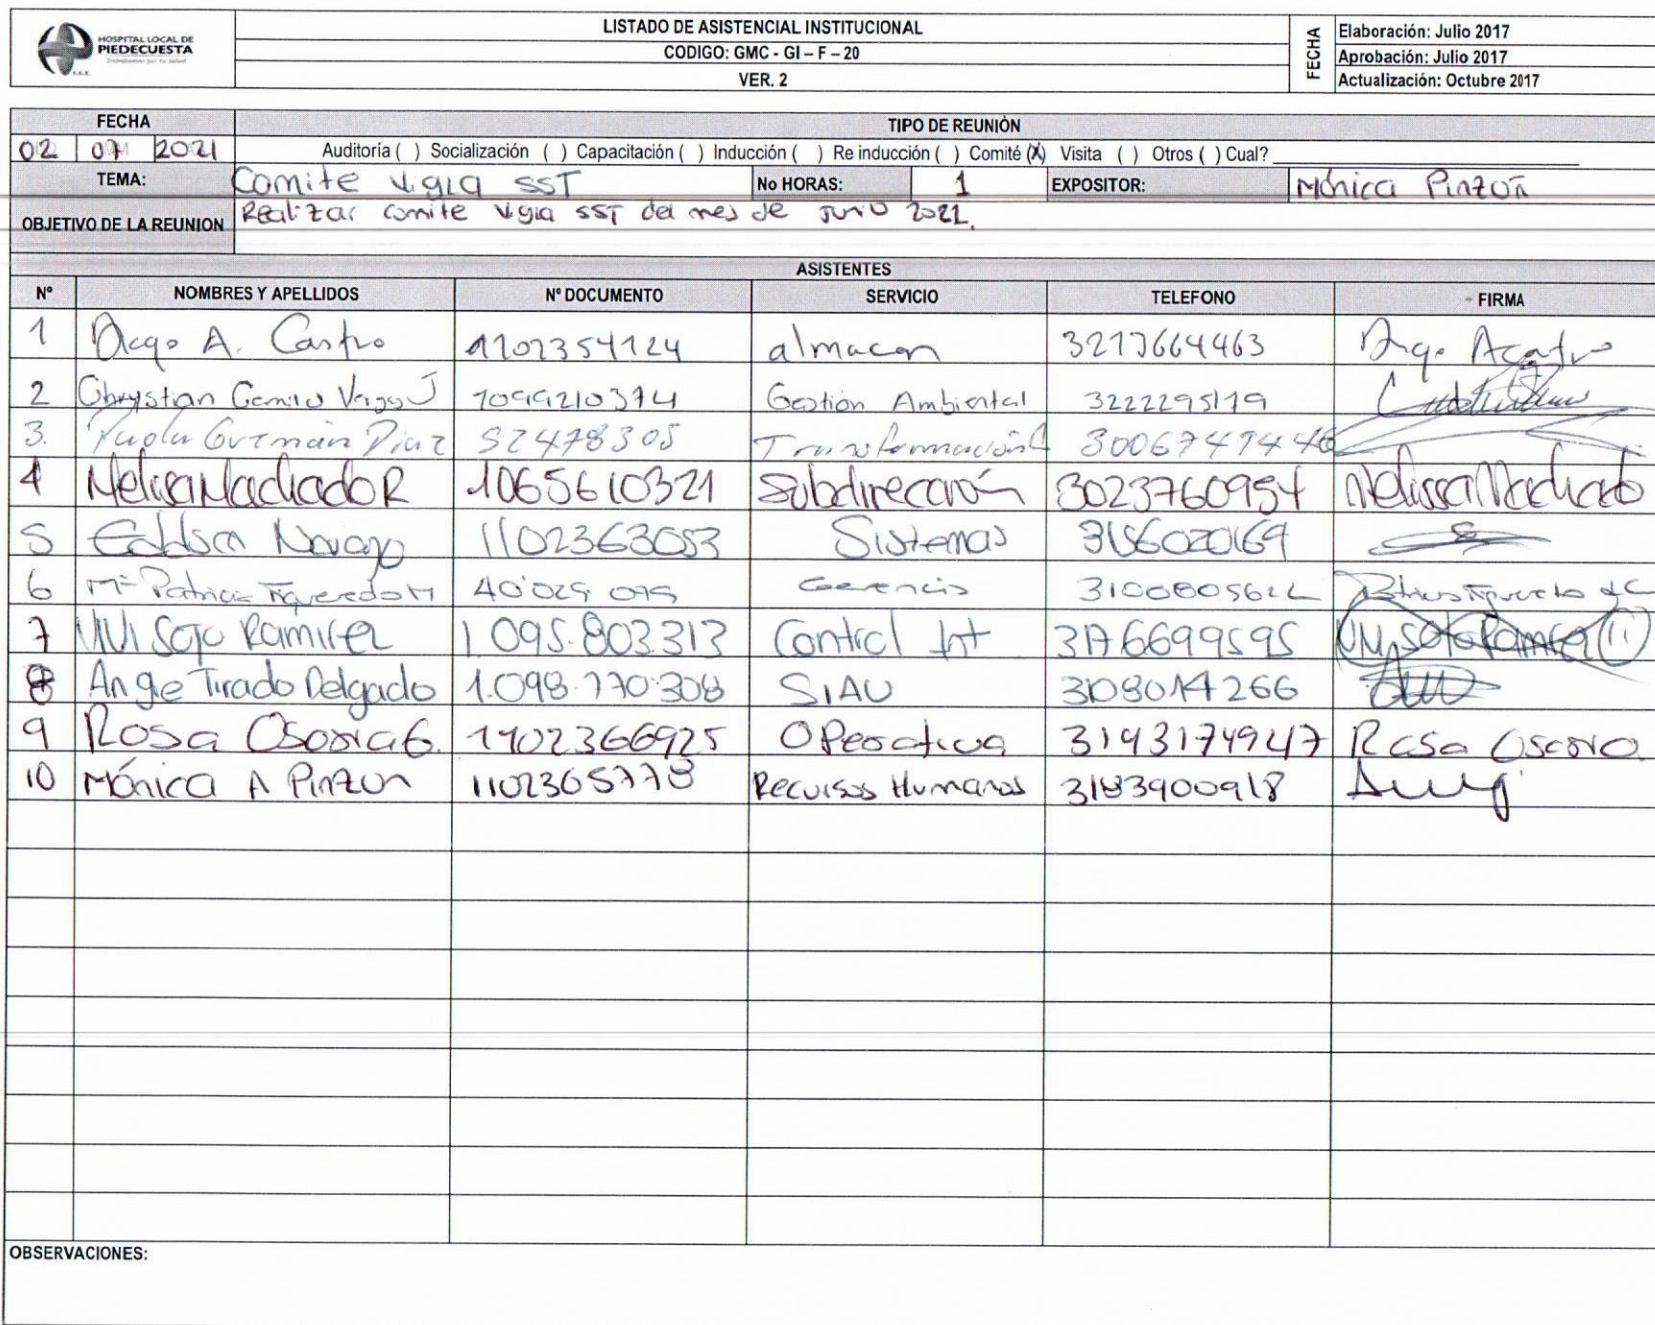 HOSPITAL LOCAL DE
PIEDECUESTA
Trabajamos por tu salud
E.S.E.
LISTADO DE ASISTENCIAL INSTITUCIONAL
CODIGO: GMC - GI – F – 20
VER. 2
FECHA
Elaboración: Julio 2017
Aprobación: Julio 2017
Actualización: Octubre 2017
FECHA TIPO DE REUNIÒN
02 07 2021 Auditoría ( ) Socialización ( ) Capacitación ( ) Inducción ( ) Re inducción ( ) Comité (X) Visita ( ) Otros ( ) Cual?
TEMA: Comite vigia SST No HORAS: 1 EXPOSITOR: Mónica Pinzón
OBJETIVO DE LA REUNION Realizar comite vigia SST del mes de Junio 2021.
ASISTENTES
Nº NOMBRES Y APELLIDOS Nº DOCUMENTO SERVICIO TELEFONO FIRMA
1 Diego A. Castro 1102354124 almacen 3217664463 Diego A Castro
2 Chrystian Camilo Vargas J 1099210374 Gestión Ambiental 3222295179
3. Paola Guzmán Diaz 52478305 Transformación 3006747446
4 Melissa Machado R 1065610321 Subdirección 3023760954 Melissa Machado
5 Eddson Navajo 1102363053 Sistemas 3156020169
6 Mª Patricia Figueredo M 40'025 095 Gerencia 3100805622
7 VIVI Soto Ramirez 1.095.803.313 Control Int 3176699595 Vivi Soto Ramirez
8 Angie Tirado Delgado 1.098.770.308 SIAU 3108014266
9 Rosa Osorio G. 1102366925 Operativa 3143174947 Rosa Osorio
10 Mónica A Pinzon 1102365778 Recursos Humanos 3183900918
OBSERVACIONES: